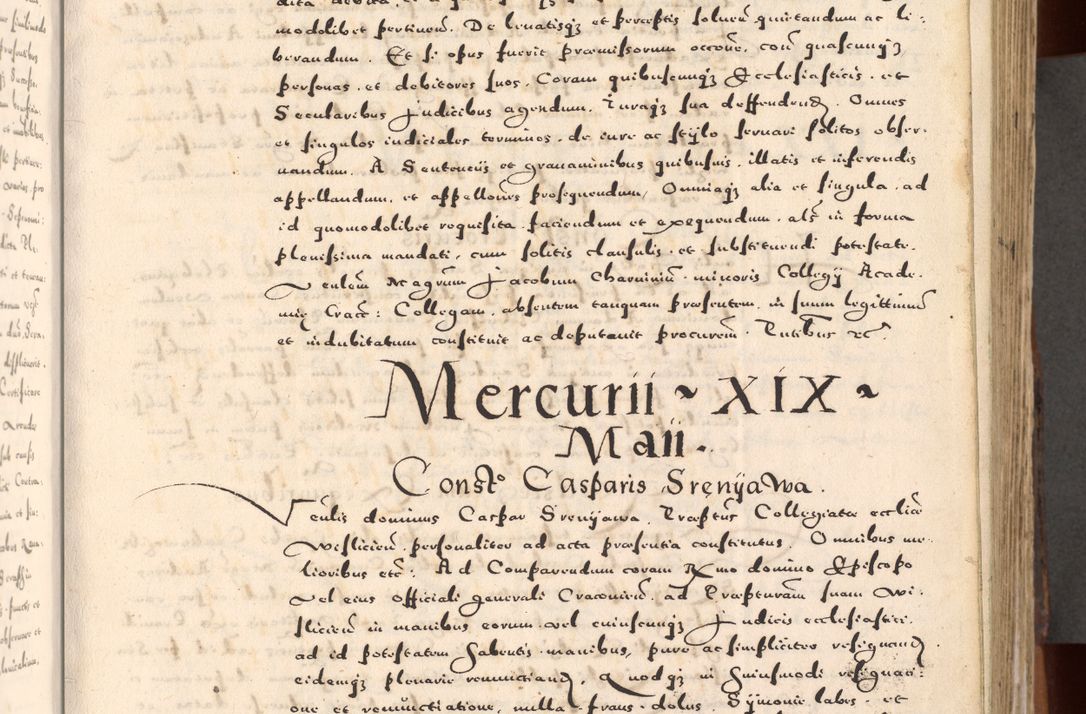 modolibet pertineñ. De levatisqз et perceptis solueñ quietandum ac li:
berandum. Et si opus fuerit præmissorum occoñe, coñ quascunqз
personas. et debitores suos. Coram quibuscunqз Ecclesiasticis. et
Secularibus judicibus agendum. Juraqз sua deffendend. Omnes
et singulos iudiciales terminos. de iure ac stylo servari solitos obser-
uandum. A Sentencijs et grauaminibus quibusuis. illatis et inferendis
appellandum. et appelloñes prosequendum, Omniaqз alia et singula. ad
id quomodolibet requisita. faciendum et exequendum. als in forma
plenissima mandati, cum solitis clausulis. et substituendi potestate.
Venleм Magrum Jacobum Charninium minoris Collegij Acade.
miæ Cracc: Collegam. absentem tanquam præsentem. in suum legittimum
et indubitatum constituit ac deputauit procureм. Tutibus etc
Mercurii ~ XIX ~
Maii.
Constº Casparis Srenijawa.
Venlis dominus Caspar Srenijawa. Præptus Collegiatæ eccliæ
Wislicieñ. personaliter ad acta præsentia constitutus. Omnibus me-
lioribus etc: Ad Comparendum coram Rmo domino Episcopo
vel eius officiali generali Cracovieñ. ad Præpturam suam Wi-
slicieñ in manibus eorum. vel cuiuscunqз Judicis ecclesiastici.
ad id potestatem habentis manibus, pure ac simpliciter resignand
eidemqз plenarie renunctiand. Quodqз in huiusmodi resignaci:
one et renunctiatione, nulla fraus. dolus. Symoniæ labes. et